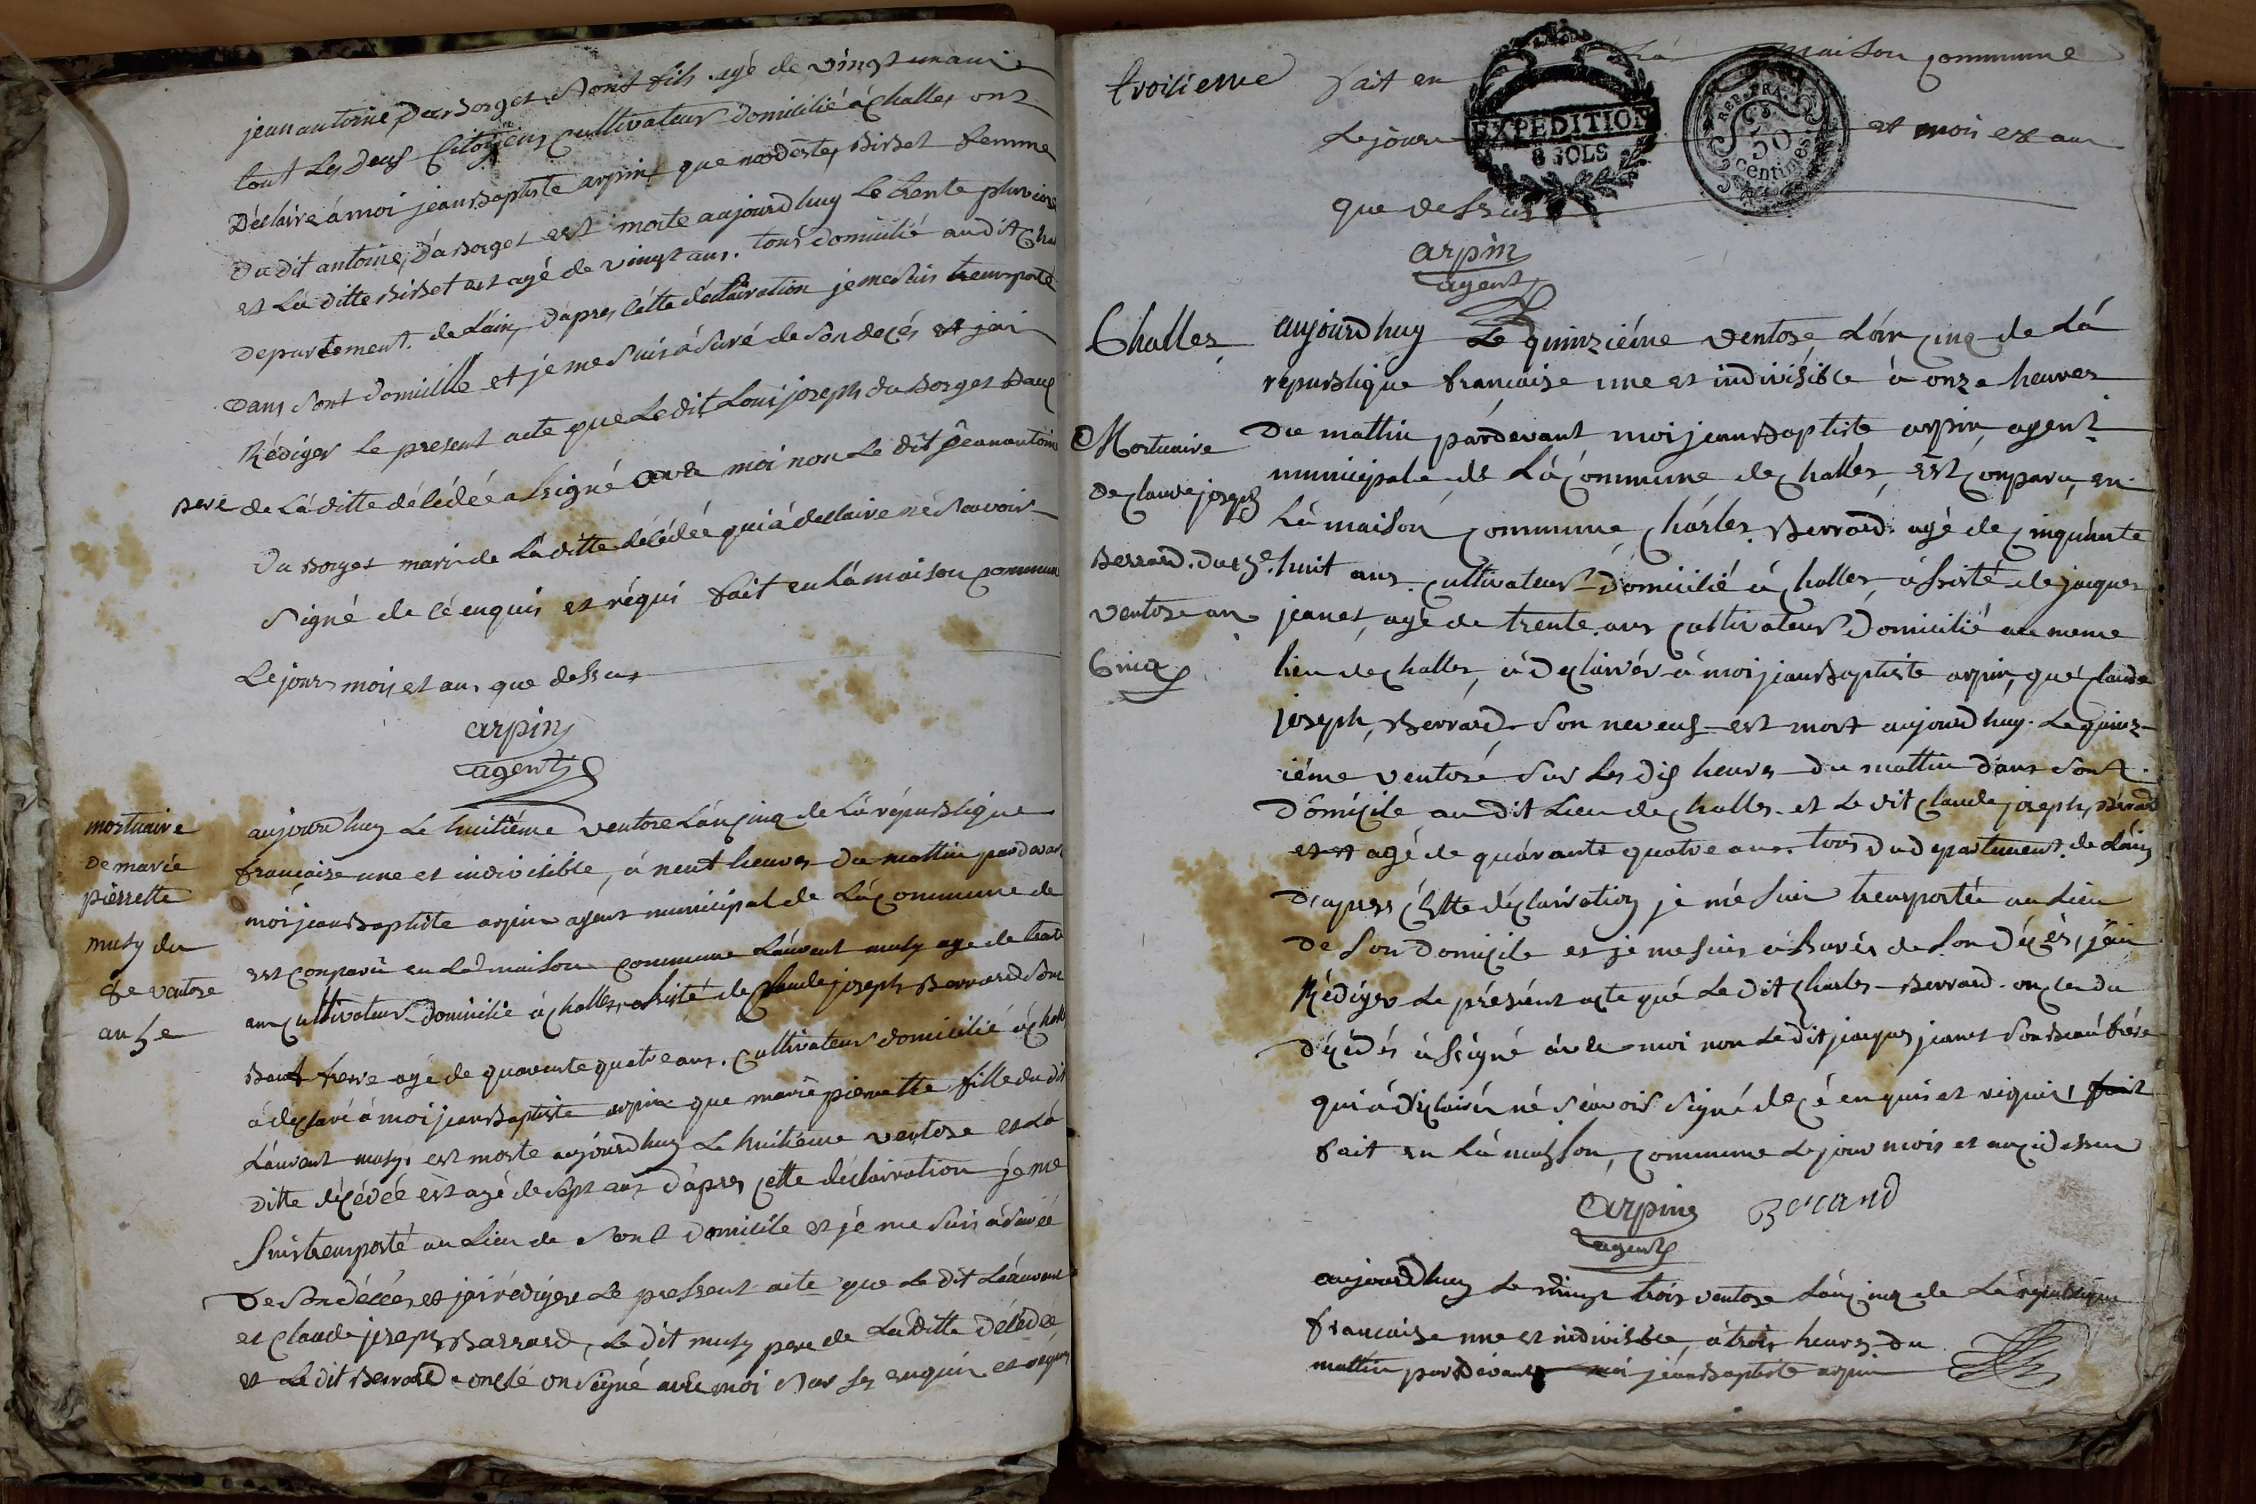 jean antoine Du Borget Sont fils agé de vingt un ans
tout Les Deux Citoyens Cultivateur domicilié à challes ont
Déclaire á moi jean Baptiste arpin que modeste Bisset femme
Du dit antoine, Du Borget est morte aujourdhuy Le trente pluviose
et La ditte Bisset est agé de vingt ans. tous domicilié au dit
Departement de Lain, D'apres cétte déclairation je me suis transporté
Dans Sont domicille et jé me suis ásuré de Son decés et jai
Rédiger Le present acte que Le dit Loui joseph du Borget Baux
pere de Lá ditte délédée a Signé avec moi non Le dit Jean antoine
Du Borget mari de Lá ditte délédée qui á declaire né Savoir
Signé de cé enquis et réqui fait en Lá maison commune
Le jour mois et an, que dessus
arpin
agent
mortuaire
De marie
pierrette
musy du
8e ventose
an 5e
aujourdhuy Le huitiéme ventose Lán cinq de Lá république
francaise une et indivisible, á neuf heures Du mattin pardevant
moi jean Baptiste arpin agent municipal de Lá Commune de
est comparu en La maison commune Láurent musy age de trente
ans Cultivateur domicilié á challes, assisté de Claude joseph Berrard Son
Baut frere agé de quarente quatre ans. Cultivateur domicilié á
á declaré á moi jean Baptiste arpin que marie pierrette fille du dit
Láurent musy, est morte aujourdhuy Le huitieme ventose et Lá
Ditte décédée est agé de sept ans D'apres cette déclairation je me
Suis transporté au Lieu de Sont Domicile et jé me suis ásuré
De Son décés et jai rédigere Le present acte que Le dit Láurent
et Claude joseph Barrard, Le Dit musy pere de La Ditte Délédée
et Le dit Berrard oncle on Signé avec moi Sur ses enquis et requis
troisieme fait en Lá maison commune
EXPEDITION
8 SOLS
REP. FRA.
50
Centimes
Le jour et mois et an
que dessus
arpin
agent
Challes
Mortuaire
De claude joseph
Berrard. du 15e
ventose an
Cinq
aujourdhuy Le quinziéme ventose Lán cinq de Lá
republique francaise une et indivisible á onze heures
Du mattin pardevant moi jean Baptiste arpin, agent
municipale de Lá Commune de challes, est comparu, en
Lá maison commune, Charles Berrard agé de cinquánte
huit ans cultivateur Domicilié á challes, assisté de jacques
jeanet, agé de trente ans Cultivateur Domicilié au meme
lieu de challes, á Declairér á moi jean Baptiste arpin, que claude
joseph, Berrard Son neveux est mort aujourdhuy. Le quinz-
iéme ventosé Sur Les dix heures du mattin dans Sont
Domicile au dit Lieu de challes et Le dit claude joseph, Bérrard
est agé de quárante quatre ans. tous Du departement de Láin
D'apres Cette déclairation je mé suis transportée au Lieu
De Son Domicile et je me suis ásurér de Son Décés, jái
Rédiger Le présent acte qué Le Dit charles Berrard oncle du
décédés á Signé ávec moi non Le dit jacques jeanet Son Beau frére
qui á Déclairér né Scávoir Signé de cé enquis et requis, fait
fait en Lá maison, commune Le jour mois et an ci dessus
arpin Berard
agent
aujourdhuy Le vingt trois ventose Lán cinq de Lá république
francaise une et indivisible, á trois heures du
mattin pardevant moi jean Baptiste arpin